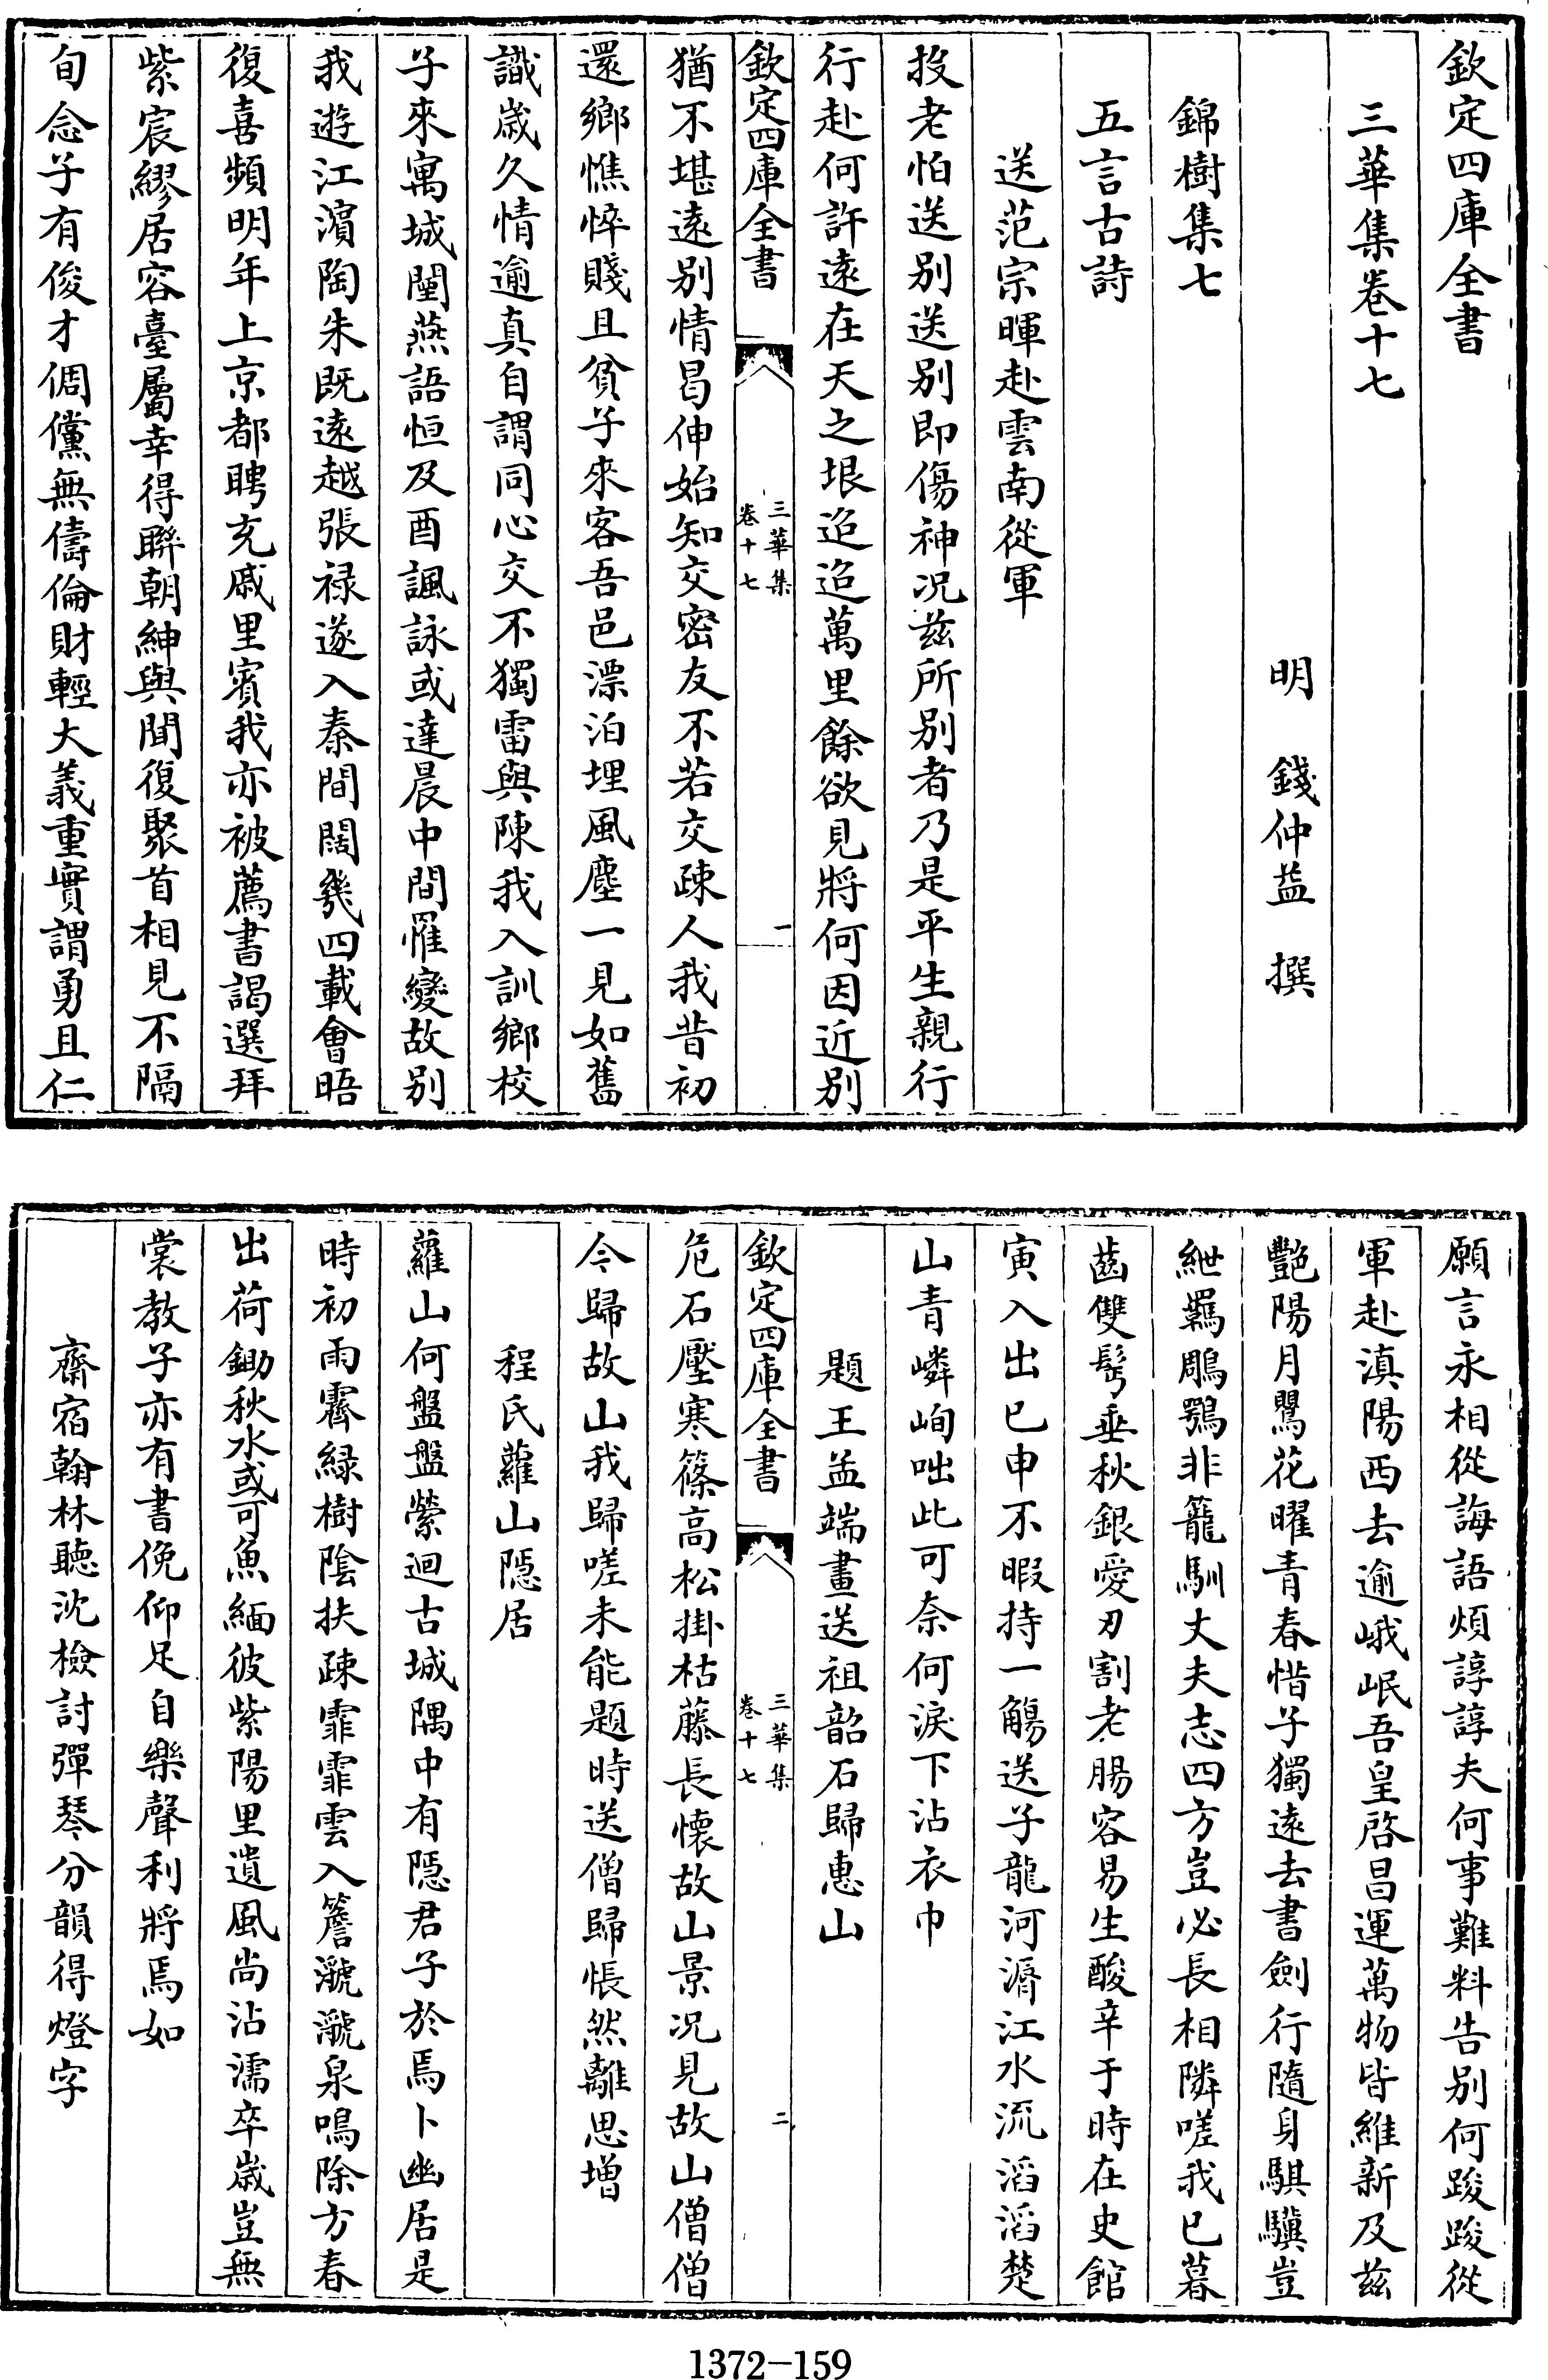 欽定四庫全書
三華集卷十七
明　錢仲益　撰
錦樹集七
五言古詩
送范宗暉赴雲南從軍
投老怕送別送別即傷神况兹所別者乃是平生親行
行赴何許遠在天之垠迢迢萬里餘欲見將何因近別
欽定四庫全書
三華集
卷十七
一
猶不堪遠別情曷伸始知交密友不若交疎人我昔初
還鄉憔悴賤且貧子來客吾邑漂泊埋風塵一見如舊
識歲久情逾真自謂同心交不獨雷與陳我入訓鄉校
子來寓城闉燕語恒及酉諷詠或達晨中間罹變故別
我遊江濵陶朱既遠越張禄遂入秦間闊幾四載會晤
復喜頻明年上京都聘充戚里賓我亦被薦書謁選拜
紫宸繆居容臺屬幸得聯朝紳與聞復聚首相見不隔
旬念子有俊才倜儻無儔倫財輕大義重實謂勇且仁
願言永相從誨語煩諄諄夫何事難料告别何踆踆從
軍赴滇陽西去逾峨岷吾皇啓昌運萬物皆維新及兹
艷陽月鸎花曜青春惜子獨遠去書劍行隨身騏驥豈
紲羈鵰鶚非籠馴丈夫志四方豈必長相隣嗟我已暮
齒雙髩垂秋銀愛刃割老腸容易生酸辛于時在史館
寅入出已申不暇持一觴送子龍河漘江水流滔滔楚
山青嶙峋咄此可奈何淚下沾衣巾
題王孟端畫送祖韶石歸惠山
欽定四庫全書
三華集
卷十七
二
危石壓寒篠高松掛枯藤長懷故山景况見故山僧僧
今歸故山我歸嗟未能題時送僧歸悵然離思增
程氏蘿山隱居
蘿山何盤盤縈迴古城隅中有隱君子於焉卜幽居是
時初雨霽緑樹陰扶疎霏霏雲入簷㶁㶁泉鳴除方春
出荷鋤秋水或可魚緬彼紫陽里遺風尚沾濡卒歲豈無
裳教子亦有書俛仰足自樂聲利將焉如
齋宿翰林聽沈檢討彈琴分韻得燈字
1372-159